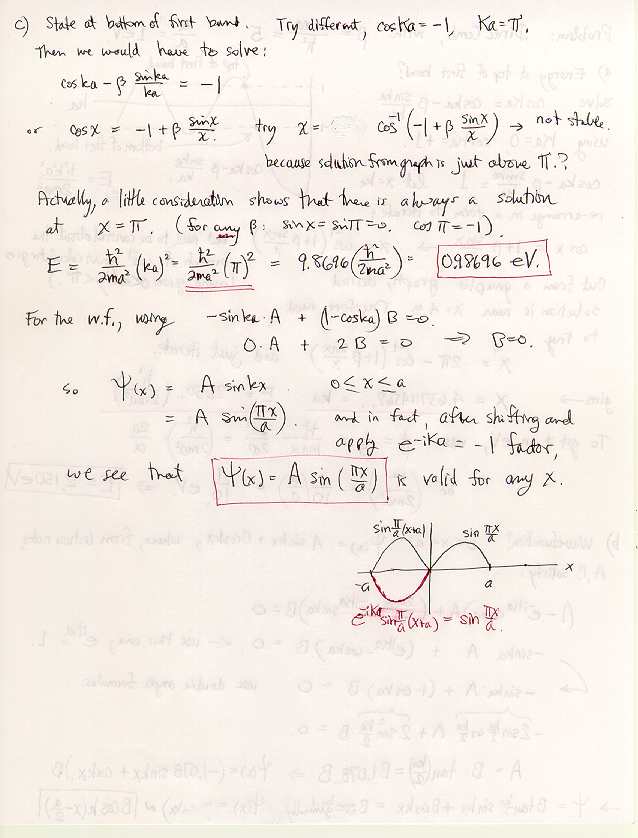 c) State at bottom of first band. Try different, cos Ka = -1, Ka = π.
Then we would have to solve:
cos ka - β sin ka / ka = -1
or cos x = -1 + β sin x / x. try x = cos⁻¹(-1 + β sin x / x) → not stable.
because solution from graph is just above π.?
Actually, a little consideration shows that there is always a solution
at x = π. (for any β: sin x = sin π = 0, cos π = -1).
E = ħ²/2ma² (ka)² = ħ²/2ma² (π)² = 9.8696 (ħ²/2ma²) = 0.98696 eV.
For the w.f., using -sin ka · A + (1 - cos ka) B = 0.
0 · A + 2 B = 0 ⇒ B = 0.
so Ψ(x) = A sin kx 0 ≤ x ≤ a
= A sin(πx/a). and in fact, after shifting and
apply e^{-iKa} = -1 factor,
we see that Ψ(x) = A sin(πx/a) is valid for any x.
sin π/a (x+a) sin πx/a
-a a x
e^{-iKa} sin π/a (x+a) = sin πx/a.